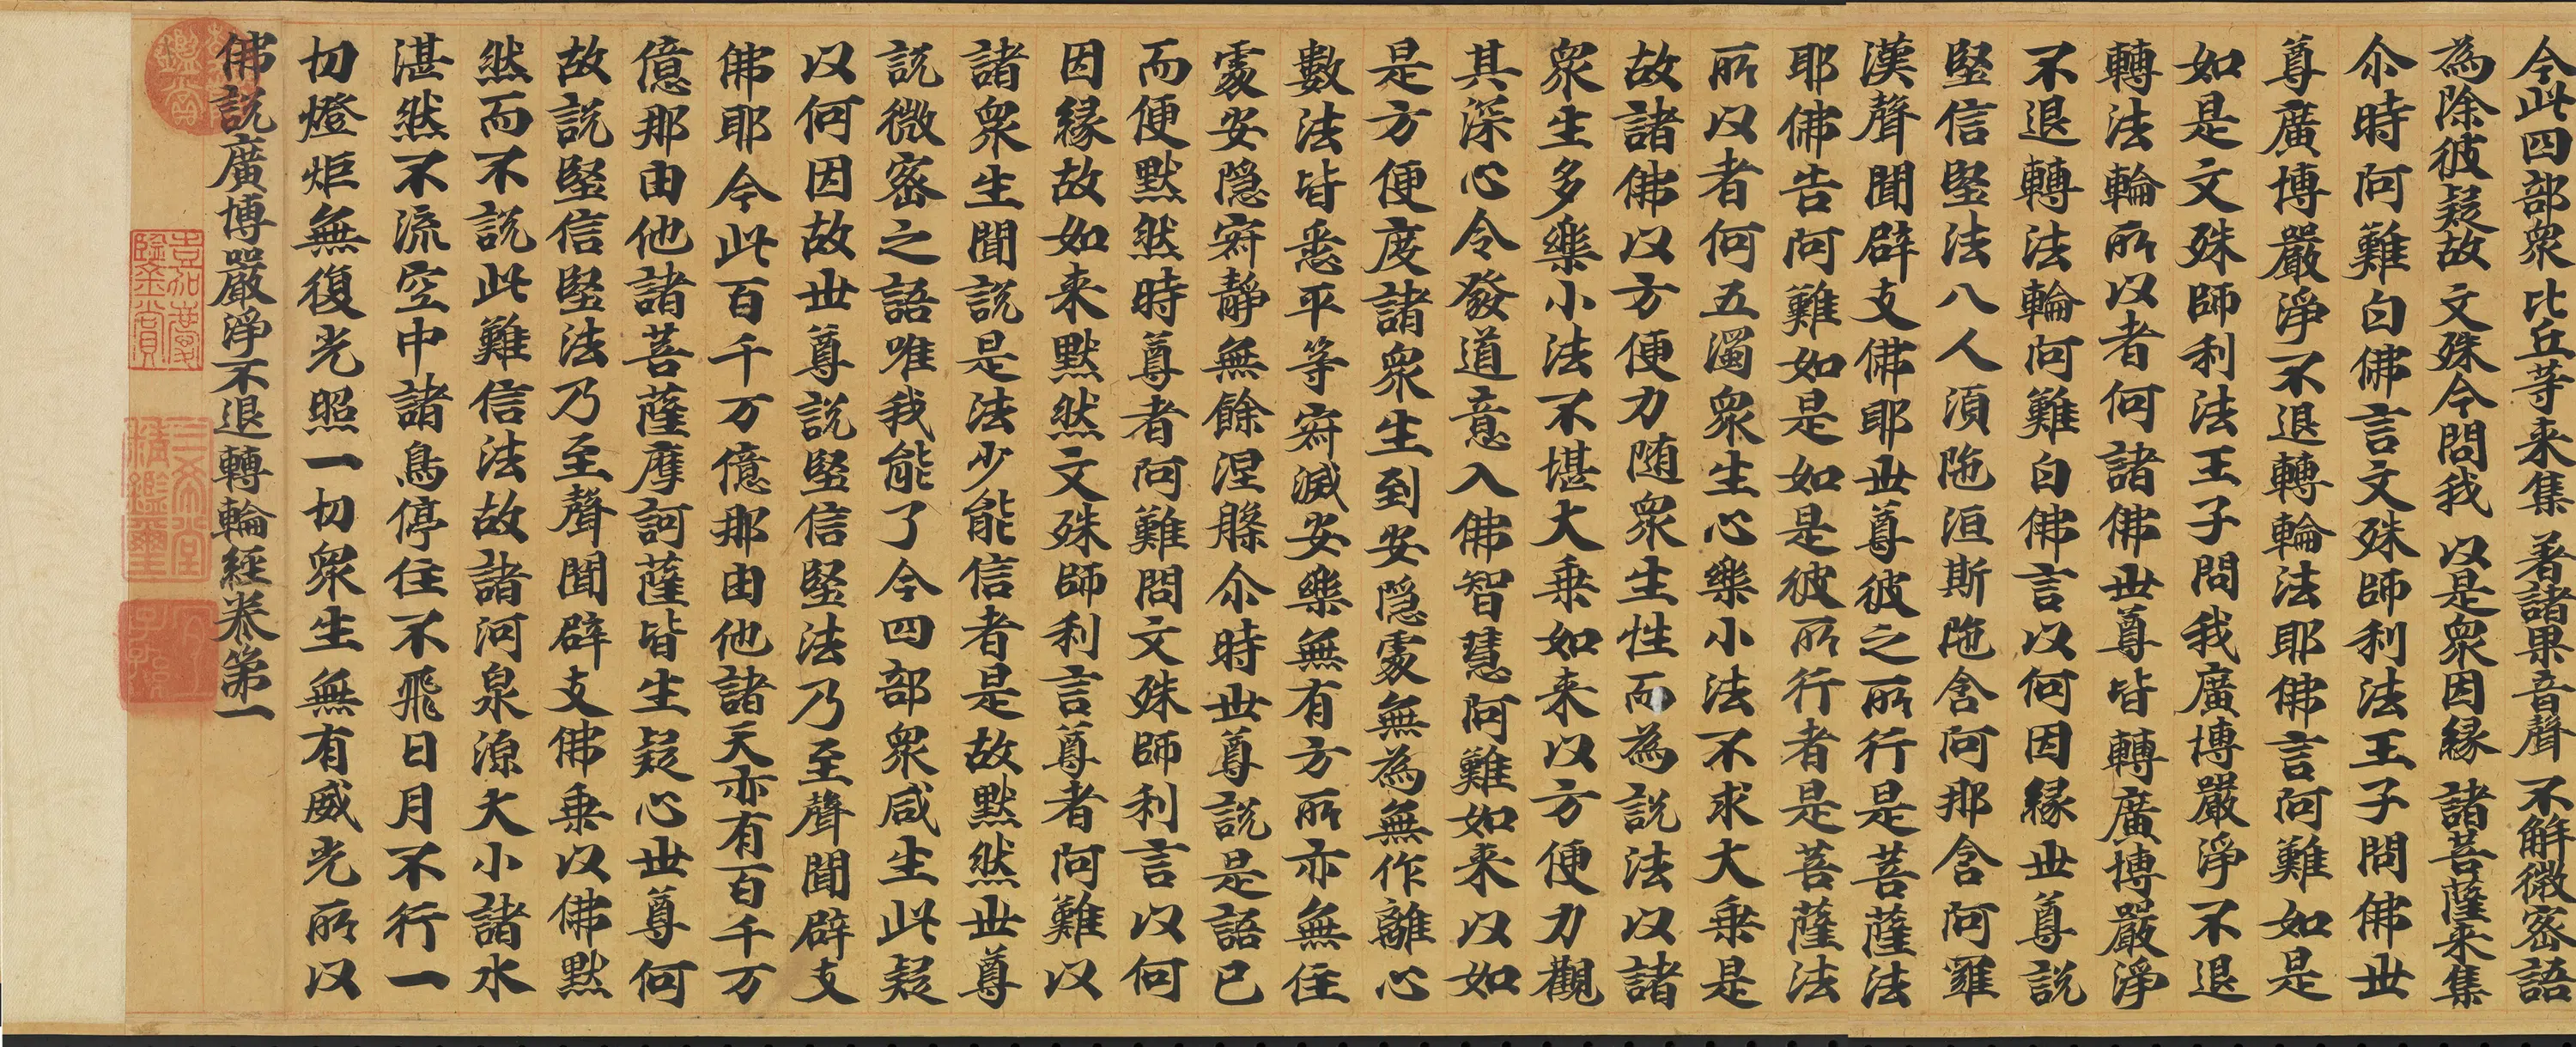 今此四部衆比丘等来集著諸果音聲不解微密語
為除彼疑故文殊今問我以是衆因縁諸菩薩来集
尒時阿難白佛言文殊師利法王子問佛世
尊廣博嚴淨不退轉輪法耶佛言阿難如是
如是文殊師利法王子問我廣博嚴淨不退
轉法輪所以者何諸佛世尊皆轉廣博嚴淨
不退轉法輪阿難白佛言以何因縁世尊説
堅信堅法八人湏陁洹斯陁含阿那含阿羅
漢聲聞辟支佛耶世尊彼之所行是菩薩法
耶佛告阿難如是如是彼所行者是菩薩法
所以者何五濁衆生心樂小法不求大乗是
故諸佛以方便力随衆生性而為説法以諸
衆生多樂小法不堪大乗如来以方便力觀
其深心令發道意入佛智慧阿難如来以如
是方便度諸衆生到安隠處無為無作離心
數法皆悉平等寂滅安樂無有方所亦無住
處安隠寂靜無餘涅槃尒時世尊説是語已
而便默然時尊者阿難問文殊師利言以何
因縁故如来默然文殊師利言尊者阿難以
諸衆生聞説是法少能信者是故默然世尊
説微密之語唯我能了今四部衆咸生此疑
以何因故世尊説堅信堅法乃至聲聞辟支
佛耶今此百千万億那由他諸天亦有百千万
億那由他諸菩薩摩訶薩皆生疑心世尊何
故説堅信堅法乃至聲聞辟支佛乗以佛默
然而不説此難信法故諸河泉源大小諸水
湛然不流空中諸鳥停住不飛日月不行一
切燈炬無復光照一切衆生無有威光所以
佛説廣博嚴淨不退轉輪經卷第一
嘉慶鑑賞
三希堂精鑑璽
宜子孫